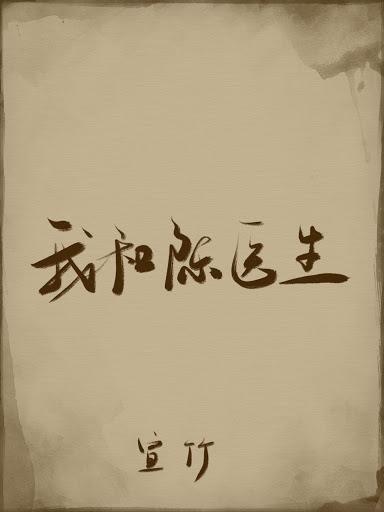 我和陈医生
宣竹